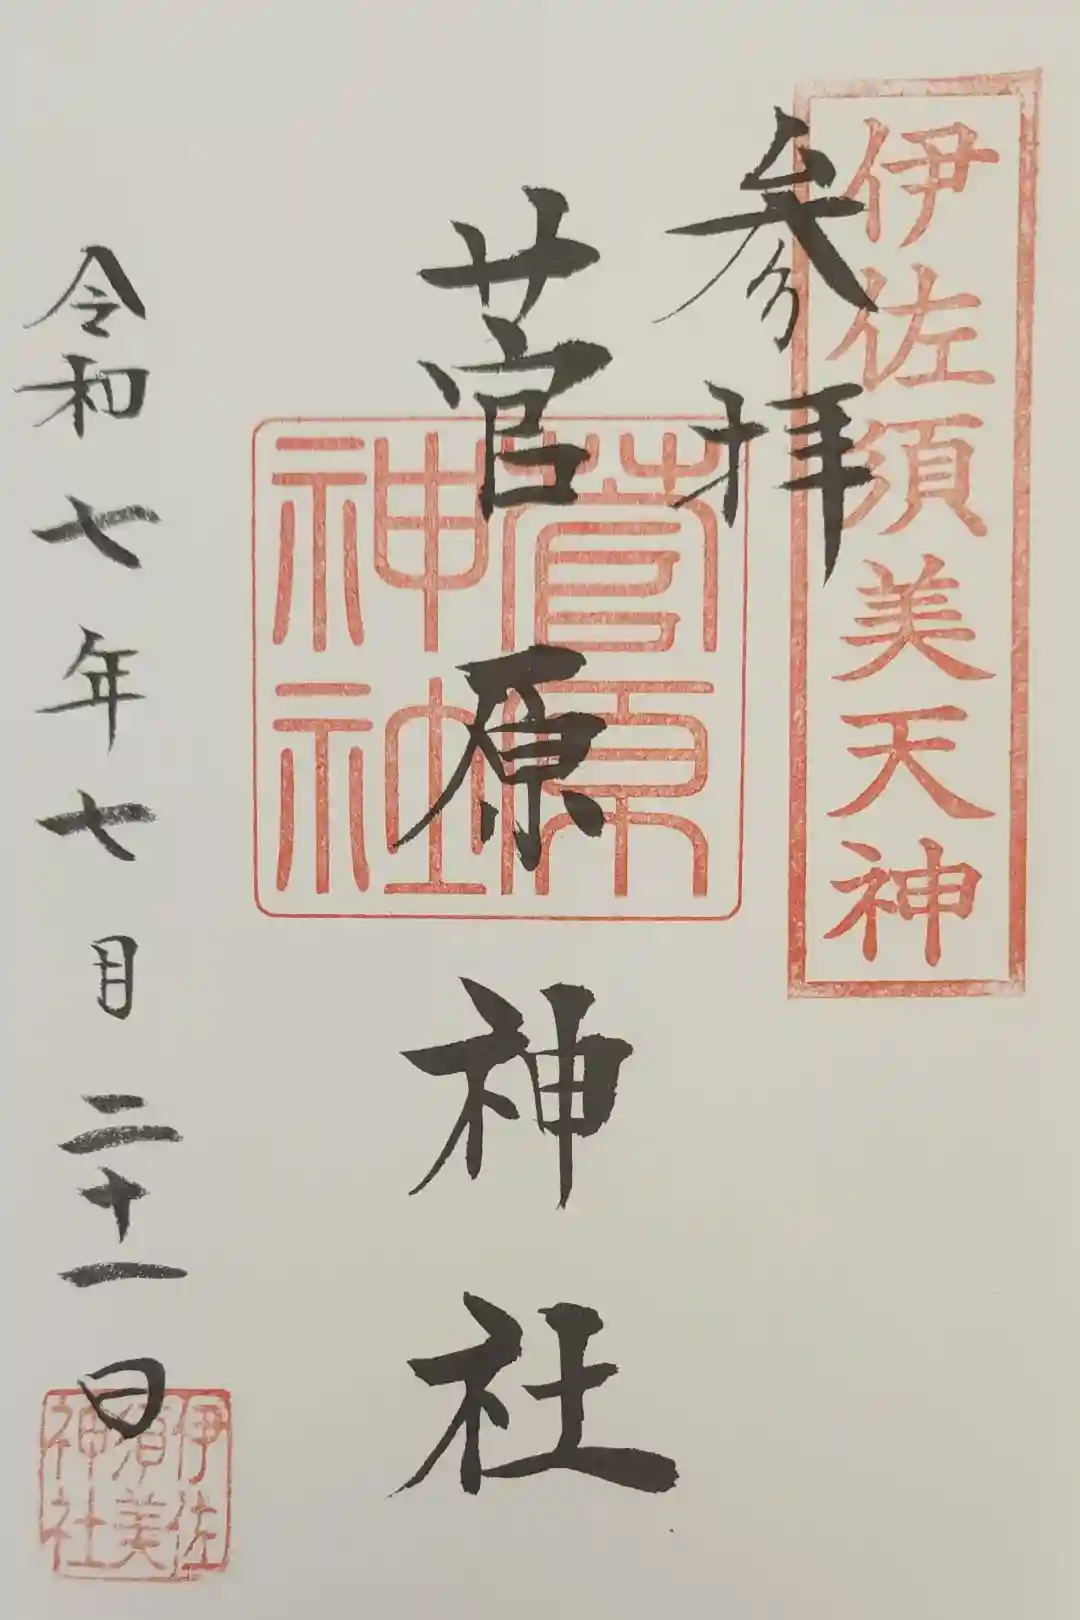 伊佐須美天神
参拝
菅原神社
菅原
神社
令和七年七月二十一日
伊佐
須美
神社